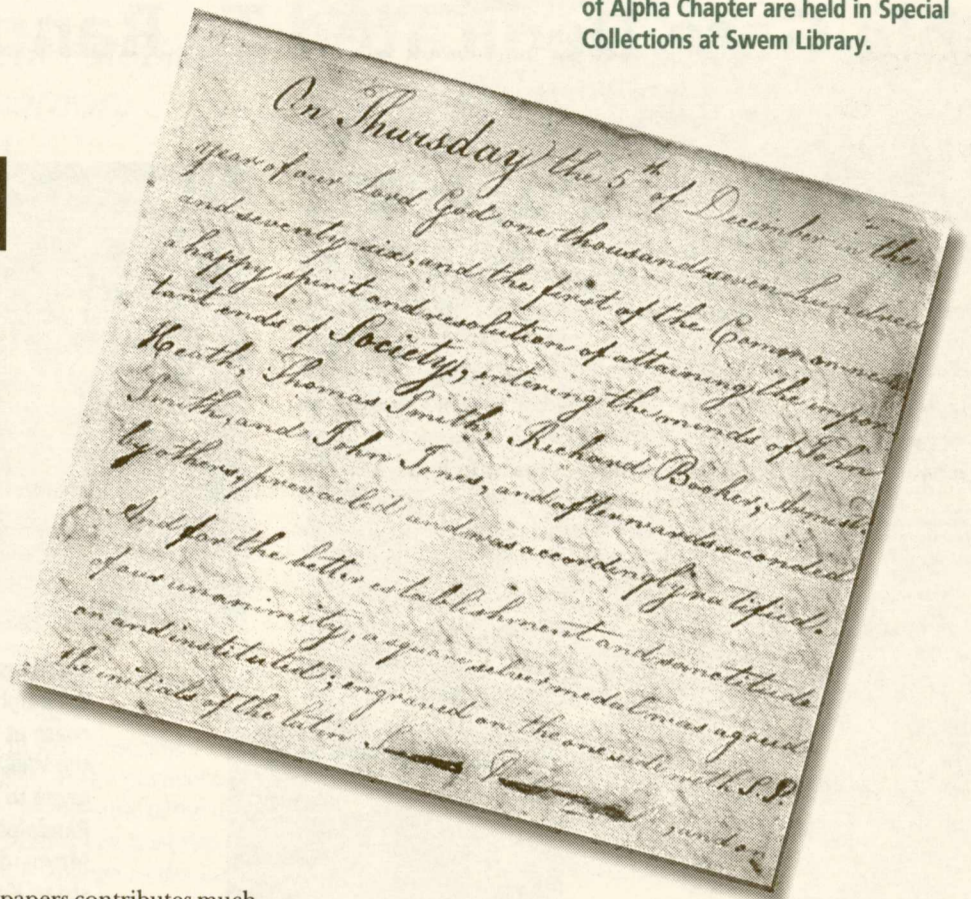 of Alpha Chapter are held in Special
Collections at Swem Library.
On Thursday the 5th of December in the
year of our Lord God one thousand seven hundred
and seventy-six, and the first of the Commonwealth
a happy spirit and resolution of attaining the impor-
tant ends of Society, entering the minds of John
Heath, Thomas Smith, Richard Booker, Armistd.
Smith, and John Jones, and afterwards seconded
by others, prevailed and was accordingly ratified.
And for the better establishment and sanctitude
of our unanimity, a square silver medal was agreed
on and instituted; engraved on the one side with S.P.
the initials of the latin and on
papers contributes much